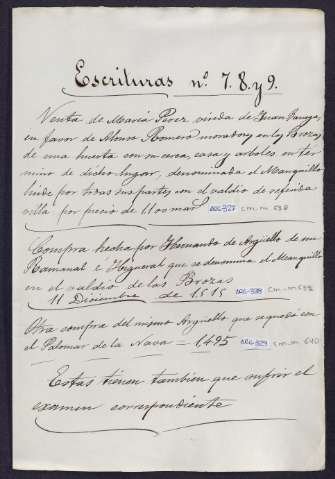 Escrituras nº. 7. 8. y 9.
Venta de Maria Perez viuda de Juan
en favor de Alonso Romero morador en las Brozas
de una huerta con su cerca, casa y arboles en tér
mino de dicho lugar, denominada el Manquillo
linde por todas sus partes con el valdio de referida
villa por precio de 1100 mar
Compra hecha por Hernando de Argüello de un
é Higueral que se denomina el Manquillo
en el valdio de las Brozas
11 Diciembre de 1515
Otra compra del mismo Argüello que
el Palomar de la Nava = 1,495
Estas tienen tambien que sufrir el
examen correspondiente